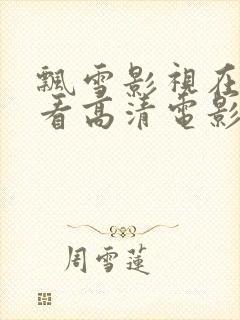 飄雪影視在
看高清電影
周雪蓮